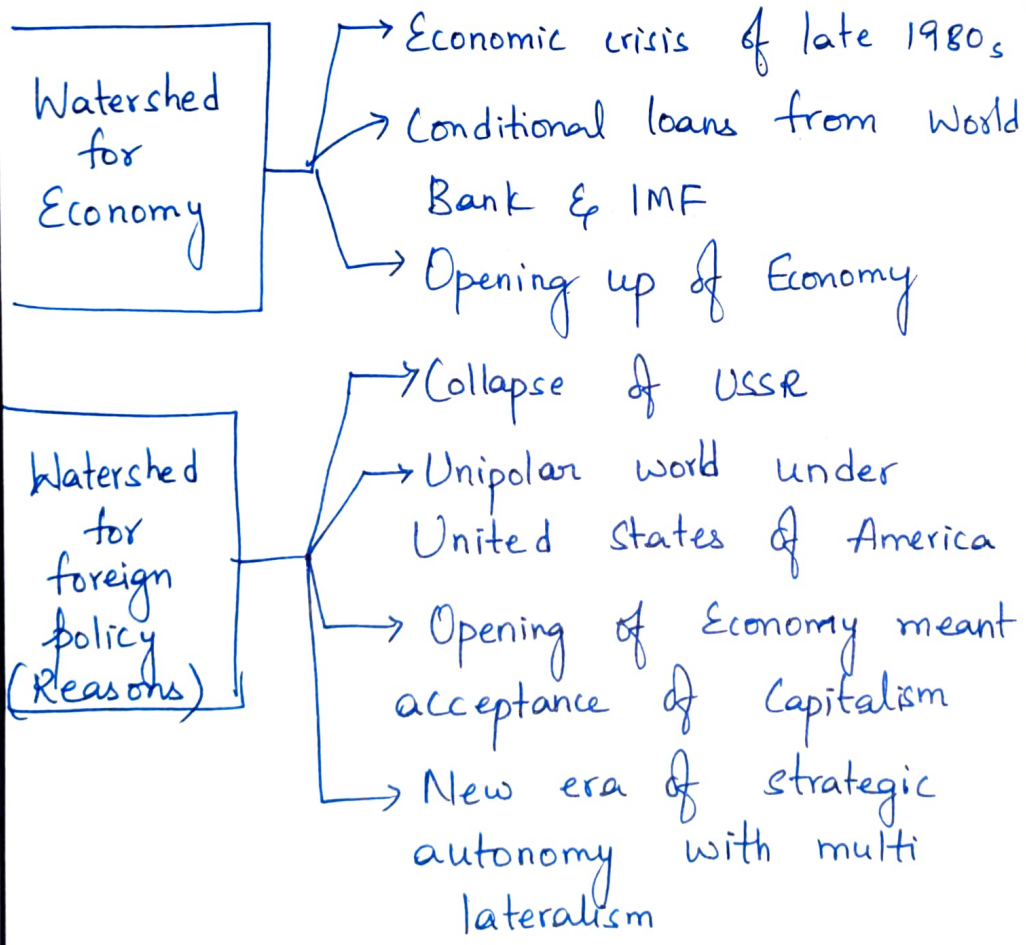 Watershed
for
Economy
Economic crisis of late 1980s
Conditional loans from World
Bank & IMF
Opening up of Economy
Watershed
for
foreign
policy
(Reasons)
Collapse of USSR
Unipolar world under
United States of America
Opening of Economy meant
acceptance of Capitalism
New era of strategic
autonomy with multi
lateralism